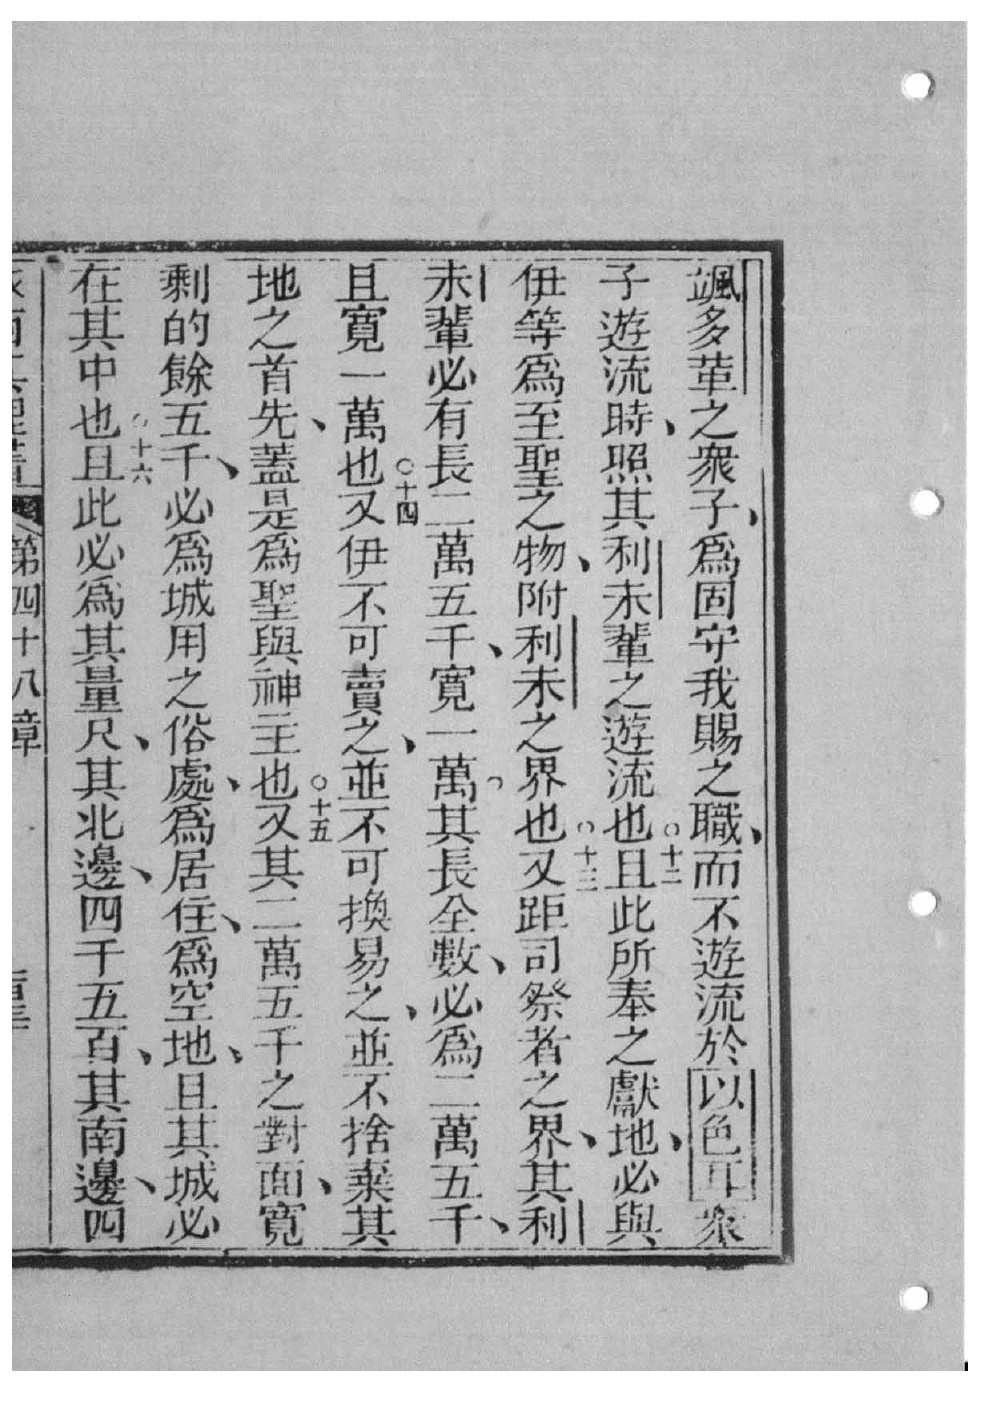 颯多輩之衆子、爲固守我賜之職、而不遊流於以色耳衆
子遊流時、照其利未輩之遊流也○十二且此所奉之獻地、必與
伊等爲至聖之物、附利未之界也○十三又距司祭者之界、其利
未輩必有長二萬五千、寬一萬○其長全數、必爲二萬五千、
且寬一萬也○十四又伊不可賣之、並不可換易之、並不捨棄其
地之首先、蓋是爲聖與神主也○十五又其二萬五千之對面、寬
剩的餘五千、必爲城用之俗處、爲居住、爲空地、且其城必
在其中也○十六且此必爲其量尺、其北邊、四千五百、其南邊、四
第四十八章